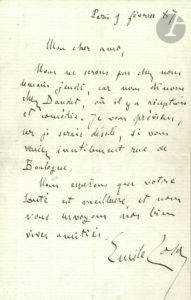 Paris 9 février 87
Mon cher ami,
Nous ne serons pas chez nous
demain jeudi, car nous dînons
chez Daudet, où il y a réception
et comédie. Je vous préviens,
car je serais désolé, si vous
veniez inutilement rue de
Boulogne.
Nous espérons que votre
santé est meilleure, et nous
vous envoyons nos bien
vives amitiés.
Emile Zola